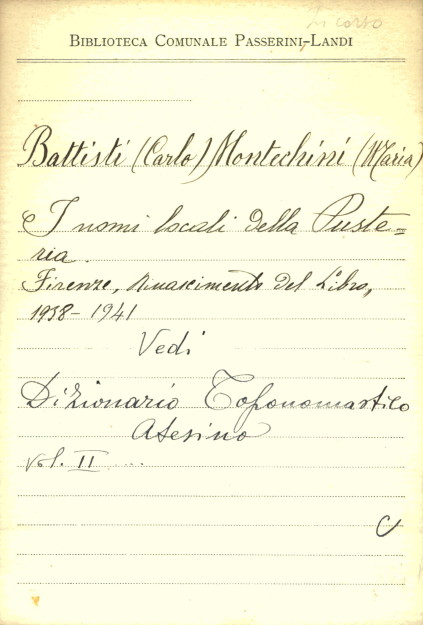 in corso
BIBLIOTECA COMUNALE PASSERINI-LANDI
Battisti (Carlo) Montechini (Maria)
I nomi locali della Puste=
ria.
Firenze, Rinascimento del Libro,
1938-1941
Vedi
Dizionario Toponomastico
Atesino
vol. II ...
C